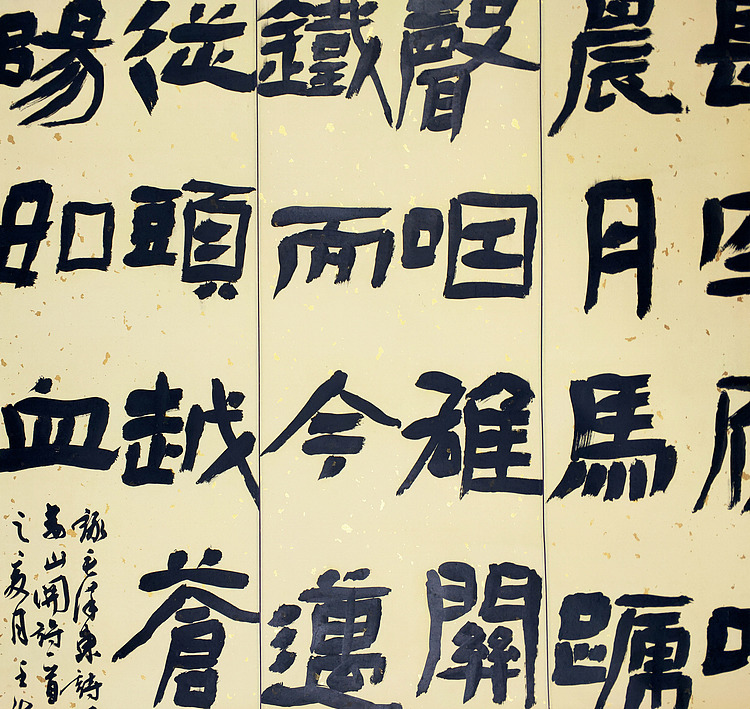 晨月馬蹏
聲咽雄關
鐵而今邁
從頭越蒼
陽如血
錄毛澤東詩
婁山關詩一首